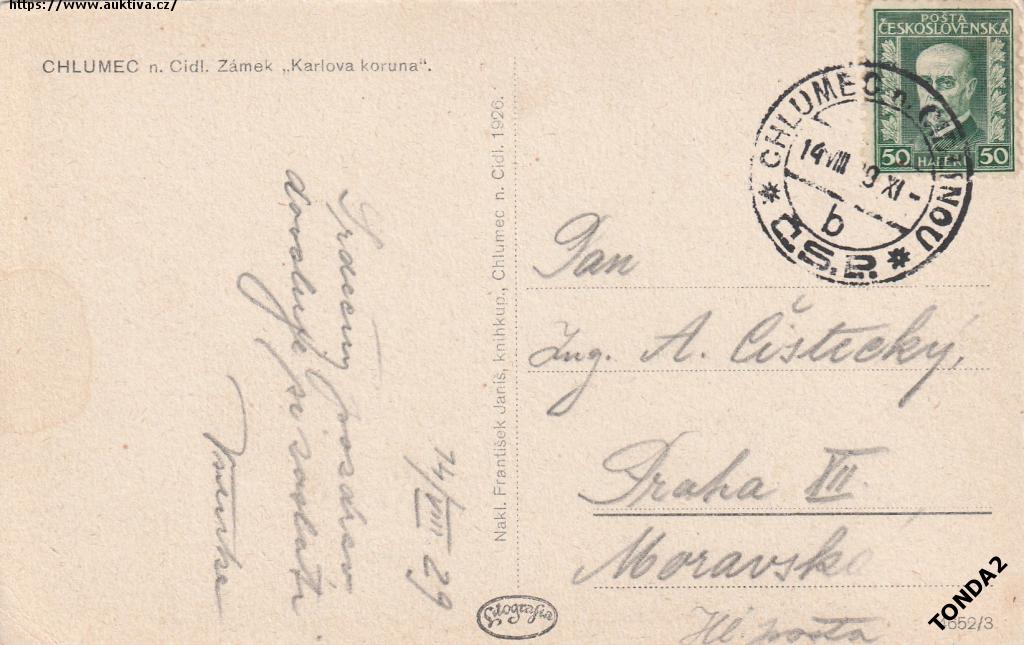 https://www.auktiva.cz/
CHLUMEC n. Cidl. Zámek „Karlova koruna“.
POŠTA
ČESKOSLOVENSKÁ
50 HALÉŘŮ 50
CHLUMEC n. CIDLINOU
14 VIII 29 XI -
b
* Č.S.P. *
Srdečný pozdrav
dovoluje si zaslati
14/VIII. 29
Nakl. František Janiš, knihkup., Chlumec n. Cidl. 1926.
Pan
Ing. A. Čistecký,
Praha VII.
Moravská
Hl. pošta
TONDA2
652/3